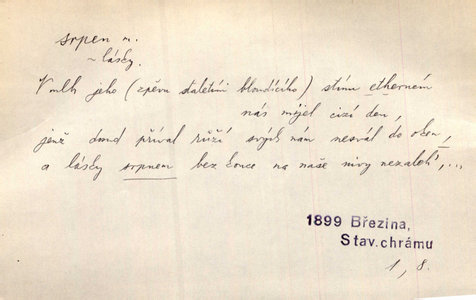 srpen m.
~ lásky.
V mlh jeho (zpěvu staletími bloudícího) stínu etherném
nás míjel cizí den,
jenž dmud příval růží svých nám nesvál do oken,
a lásky srpnem bez konce na naše nivy nezaleh', ...
1899 Březina,
Stav. chrámu
1, 8.